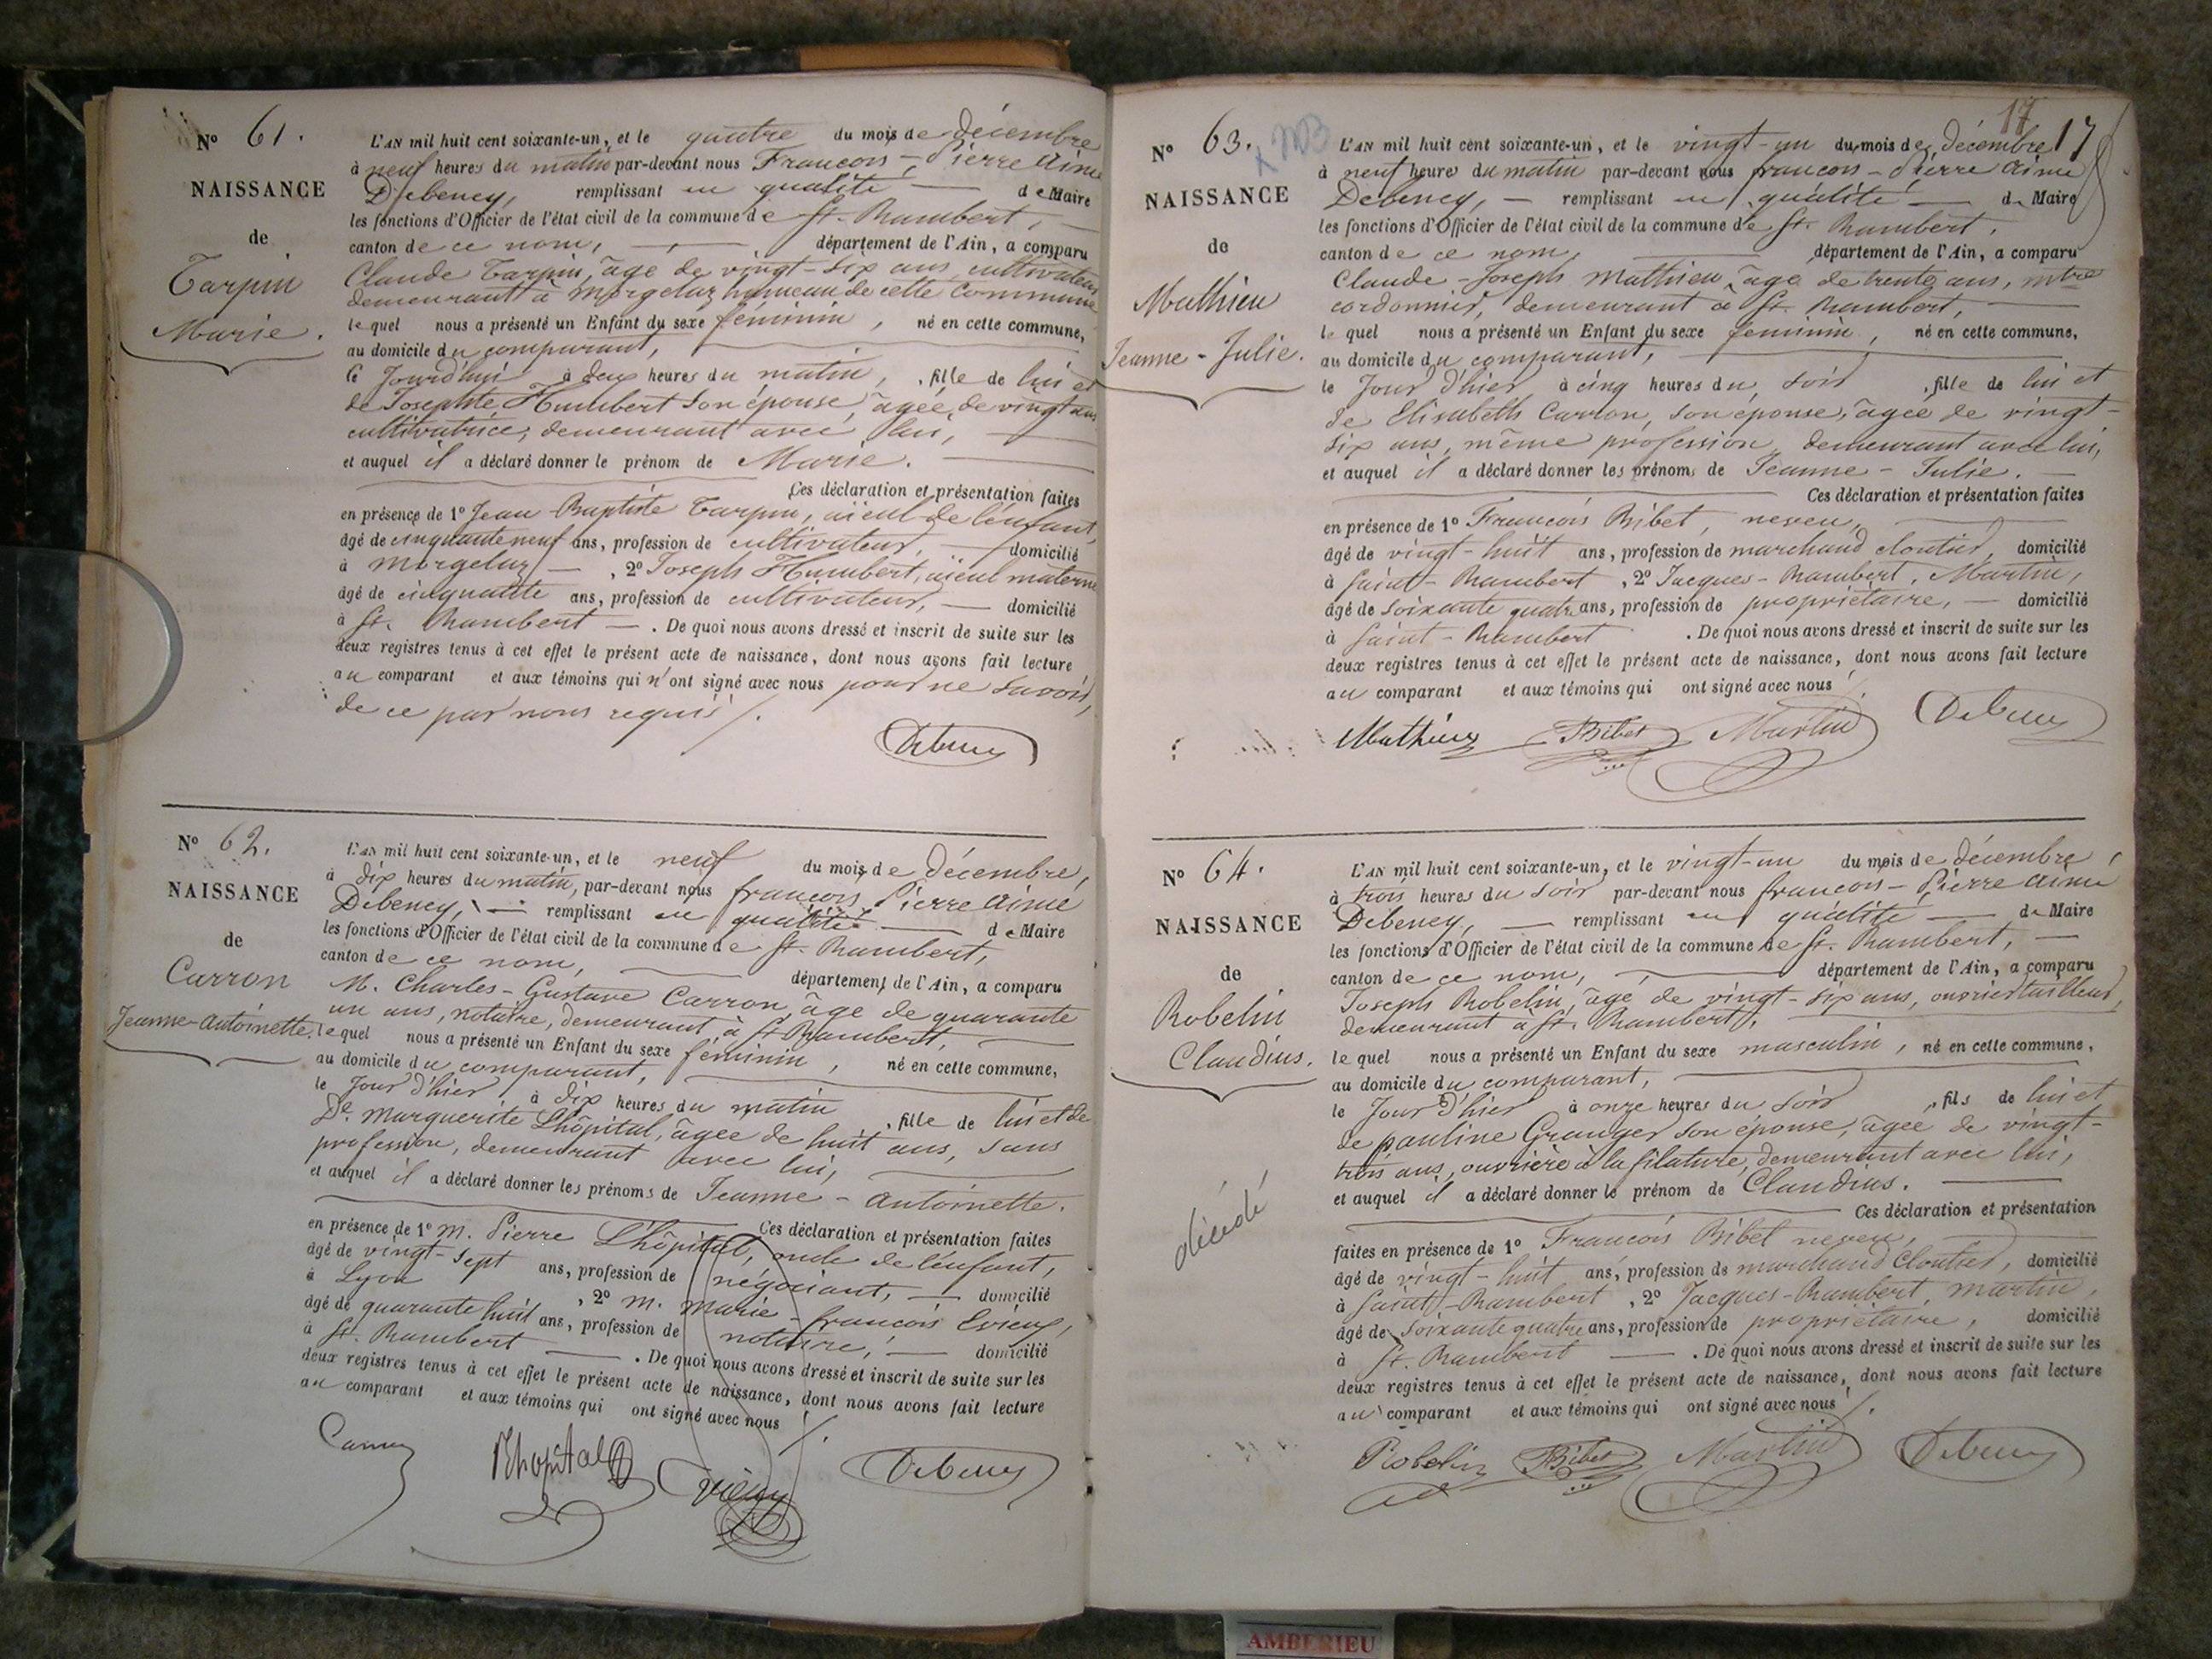 N° 61.
NAISSANCE
de
Tarpin
Marie.
L'AN mil huit cent soixante-un, et le quatre du mois de décembre
à neuf heures du matin par-devant nous François-Pierre Aimé
Debeney, remplissant en qualité de Maire
les fonctions d'Officier de l'état civil de la commune de St. Rambert,
canton de ce nom, département de l'Ain, a comparu
Claude Tarpin, âgé de vingt-six ans, cultivateur
demeurant à Morgelaz hameau de cette Commune
lequel nous a présenté un Enfant du sexe féminin, né en cette commune,
au domicile du comparant,
ce Jourd'hui à deux heures du matin, fille de lui et
de Josephte Humbert son épouse, âgée de vingt ans
cultivatrice, demeurant avec lui,
et auquel il a déclaré donner le prénom de Marie.
Ces déclaration et présentation faites
en présence de 1° Jean Baptiste Tarpin, aïeul de l'enfant,
âgé de cinquante neuf ans, profession de cultivateur, domicilié
à Morgelaz, 2° Joseph Humbert, aïeul materne
âgé de cinquante ans, profession de cultivateur, domicilié
à St. Rambert. De quoi nous avons dressé et inscrit de suite sur les
deux registres tenus à cet effet le présent acte de naissance, dont nous avons fait lecture
au comparant et aux témoins qui n'ont signé avec nous pour ne savoir,
de ce par nous requis /.
Debeney
N° 62.
NAISSANCE
de
Carron
Jeanne-Antoinette.
L'AN mil huit cent soixante-un, et le neuf du mois de décembre,
à dix heures du matin, par-devant nous françois Pierre Aimé
Debeney, remplissant en qualité de Maire
les fonctions d'Officier de l'état civil de la commune de St. Rambert,
canton de ce nom, département de l'Ain, a comparu
M. Charles-Gustave Carron, âgé de quarante
un ans, notaire, demeurant à St Rambert,
lequel nous a présenté un Enfant du sexe féminin, né en cette commune,
au domicile du comparant,
le Jour d'hier, à dix heures du matin, fille de lui et de
De. Marguerite Lhôpital, âgée de huit ans, sans
profession, demeurant avec lui,
et auquel il a déclaré donner les prénoms de Jeanne-Antoinette.
Ces déclaration et présentation faites
en présence de 1° M. Pierre Lhôpital, oncle de l'enfant,
âgé de vingt-sept ans, profession de négociant, domicilié
à Lyon, 2° M. Marie-françois Evieux,
âgé de quarante huit ans, profession de notaire, domicilié
à St. Rambert. De quoi nous avons dressé et inscrit de suite sur les
deux registres tenus à cet effet le présent acte de naissance, dont nous avons fait lecture
au comparant et aux témoins qui ont signé avec nous /.
Carron Lhopital Debeney
17 17
N° 63.
NAISSANCE
de
Mathieu
Jeanne-Julie.
L'AN mil huit cent soixante-un, et le vingt-un du mois de décembre
à neuf heure du matin par-devant nous françois-Pierre Aimé
Debeney, remplissant en qualité de Maire
les fonctions d'Officier de l'état civil de la commune de St. Rambert,
canton de ce nom, département de l'Ain, a comparu
Claude-Joseph Mathieu, âgé de trente ans, mtre
cordonnier, demeurant à St. Rambert,
lequel nous a présenté un Enfant du sexe féminin, né en cette commune,
au domicile du comparant,
le Jour d'hier à cinq heures du soir, fille de lui et
de Elisabeth Carron, son épouse, âgée de vingt-
six ans, même profession, demeurant avec lui,
et auquel il a déclaré donner les prénoms de Jeanne-Julie.
Ces déclaration et présentation faites
en présence de 1° François Bibet, neveu,
âgé de vingt-huit ans, profession de marchand cloutier, domicilié
à Saint-Rambert, 2° Jacques-Rambert, Martin,
âgé de soixante quatre ans, profession de propriétaire, domicilié
à Saint-Rambert. De quoi nous avons dressé et inscrit de suite sur les
deux registres tenus à cet effet le présent acte de naissance, dont nous avons fait lecture
au comparant et aux témoins qui ont signé avec nous /.
Mathieu Bibet Martin Debeney
N° 64.
NAISSANCE
de
Robelin
Claudius.
décédé
L'AN mil huit cent soixante-un, et le vingt-un du mois de décembre,
à trois heures du soir par-devant nous françois-Pierre Aimé
Debeney, remplissant en qualité de Maire
les fonctions d'Officier de l'état civil de la commune de St. Rambert,
canton de ce nom, département de l'Ain, a comparu
Joseph Robelin, âgé de vingt-six ans, ouvrier tailleur,
demeurant à St. Rambert,
lequel nous a présenté un Enfant du sexe masculin, né en cette commune,
au domicile du comparant,
le Jour d'hier à onze heures du soir, fils de lui et
de pauline Granger son épouse, âgée de vingt-
trois ans, ouvrière à la filature, demeurant avec lui,
et auquel il a déclaré donner le prénom de Claudius.
Ces déclaration et présentation
faites en présence de 1° François Bibet neveu,
âgé de vingt-huit ans, profession de marchand Cloutier, domicilié
à Saint-Rambert, 2° Jacques-Rambert, Martin,
âgé de soixante quatre ans, profession de propriétaire, domicilié
à St. Rambert. De quoi nous avons dressé et inscrit de suite sur les
deux registres tenus à cet effet le présent acte de naissance, dont nous avons fait lecture
au comparant et aux témoins qui ont signé avec nous /.
Robelin Bibet Martin Debeney
AMBERIEU